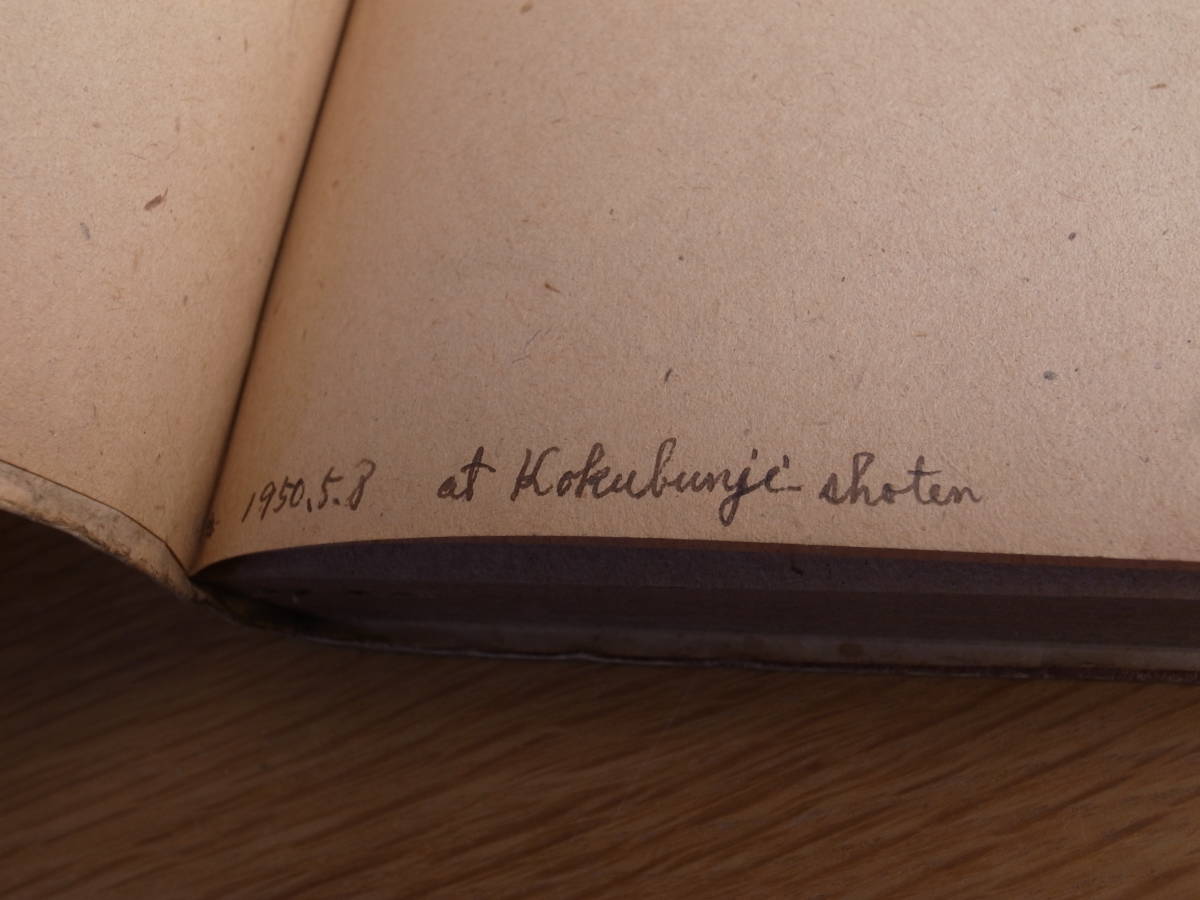 1950.5.8 at Kokubunji shoten